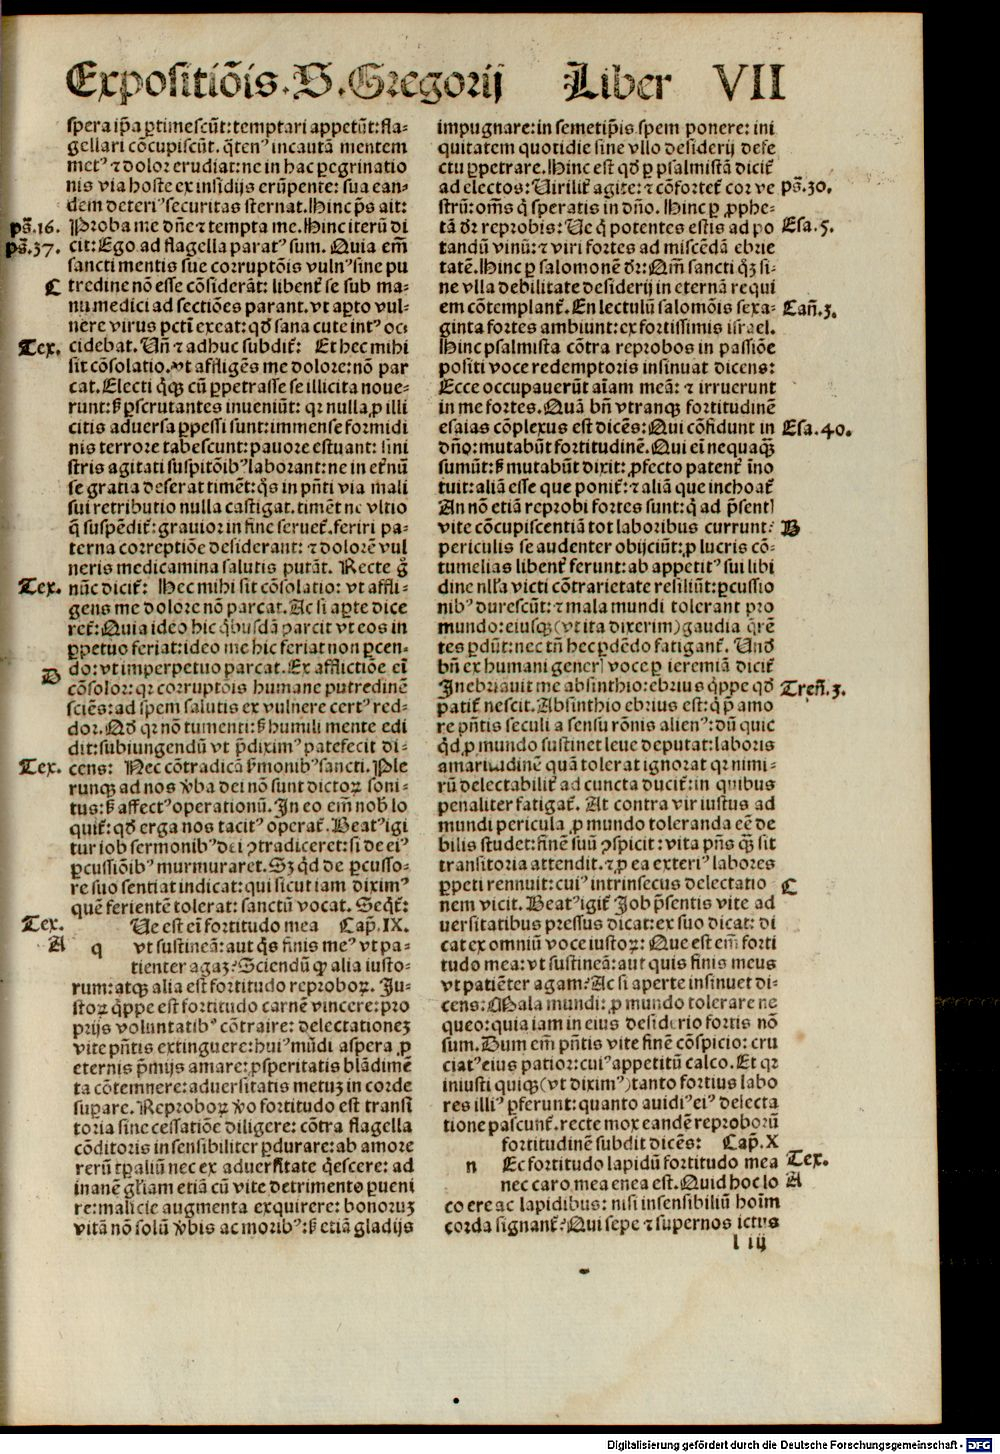 Expositiõis. S. Gregorij Liber VII
spera ip̃a ꝑtimescũt: temptari appetũt: fla⸗
gellari cõcupiscũt. q̃tenꝰ incautã mentem
metꝰ ⁊ dolor erudiat: ne in hac peregrinatio
nis via hoste ex insidijs erũpente: sua ean⸗
dem deteriꝰ securitas sternat. Hinc p̃s ait:
ps̃.16. Proba me dñe ⁊ tempta me. Hinc iterũ di
ps̃.37. cit: Ego ad flagella paratꝰ sum. Quia em̃
sancti mentis sue corruptõis vulnꝰ sine pu
C tredine nõ esse cõsiderãt: libent̃ se sub ma⸗
nu medici ad sectiões parant. vt aꝑto vul⸗
nere virus pctĩ exeat: qd̃ sana cute intꝰ oc
Tex. cidebat. Vñ ⁊ adhuc subdit̃: Et hec mihi
sit cõsolatio. vt affligẽs me dolore: nõ par
cat. Electi q̃qꝫ cũ ꝑpetrasse se illicita noue⸗
runt: sꝫ ꝑscrutantes inueniũt: qr nulla ꝓ illi
citis aduersa ꝑpessi sunt: immense formidi
nis terrore tabescunt: pauore estuant: sini
stris agitati suspitõibꝰ laborant: ne in et̃nũ
se gratia deserat timẽt: q̃s in p̃nti via mali
sui retributio nulla castigat. timẽt ne vltio
q̃ suspẽdit̃: grauior in fine seruet̃. feriri pa⸗
terna correptiõe desiderant: ⁊ dolorẽ vul
neris medicamina salutis putãt. Recte g̃
Tex. nũc dicit̃: Hec mihi sit cõsolatio: vt affli⸗
gens me dolore nõ parcat. Ac si aꝑte dice
ret̃: Quia ideo hic q̃busdã parcit vt eos in
ꝑpetuo feriat: ideo me hic feriat non ꝑcen⸗
B do: vt imperpetuo parcat. Ex afflictiõe eĩ
cõsolor: qr corruptõis humane putredinẽ
sciẽs: ad spem salutis ex vulnere certꝰ red⸗
dor. Qd̃ qr nõ tumenti: sꝫ humili mente edi
dit: subiungendũ vt p̃diximꝰ patefecit di⸗
Tex. cens: Nec cõtradicã s̃monibꝰ sancti. Ple
runqꝫ ad nos v̾ba dei nõ sunt dictoꝝ soni⸗
tus: sꝫ affectꝰ operationũ. In eo em̃ nob̾ lo
quit̃: qd̃ erga nos tacitꝰ operat̃. Beatꝰ igi
tur iob sermonibꝰ dei ꝯtradiceret: si de eiꝰ
ꝑcussiõibꝰ murmuraret. Sꝫ q̃d de ꝑcusso⸗
re suo sentiat indicat: qui sicut iam diximꝰ
quẽ ferientẽ tolerat: sanctũ vocat. Seq̃t̃:
Tex. Ue est eĩ fortitudo mea Cap̃.IX.
A q vt sustineã: aut q̃s finis meꝰ vt pa⸗
tienter agaꝫ? Sciendũ qꝫ alia iusto⸗
rum: atqꝫ alia est fortitudo reproboꝝ. Ju⸗
stoꝝ q̃ppe est fortitudo carnẽ vincere: pro
prijs voluntatibꝰ cõtraire: delectationeꝫ
vite p̃ntis extinguere: huiꝰ mũdi aspera ꝓ
eternis p̃mijs amare: ꝓsperitatis blãdimẽ
ta cõtemnere: aduersitatis metuꝫ in corde
suꝑare. Reproboꝝ v̾o fortitudo est transi
toria sine cessatiõe diligere: cõtra flagella
cõditoris insensibiliter ꝑdurare: ab amore
rerũ tꝑaliũ nec ex aduersitate q̃escere: ad
inanẽ gl̃iam etiã cũ vite detrimento ꝑueni
re: malicie augmenta exquirere: bonoruꝫ
vitã nõ solũ v̾bis ac moribꝰ: sꝫ etiã gladijs
impugnare: in semetip̃is spem ponere: ini
quitatem quotidie sine vllo desiderij defe
ctu ꝑpetrare. Hinc est qd̃ ꝑ psalmistã dicit̃
ad electos: Uirilit̃ agite: ⁊ cõfortet̃ cor ve ps̃.30.
strũ: om̃s q̃ speratis in dño. Hinc ꝑ ꝓphe⸗
tã dr̃ reprobis: Ue q̃ potentes estis ad po Esa.5.
tandũ vinũ: ⁊ viri fortes ad miscẽdã ebrie
tatẽ. Hinc ꝑ salomonẽ dr̃: Om̃s sancti q̃ꝫ si⸗
ne vlla debilitate desiderij in eternã requi
em cõtemplant̃. En lectulũ salomõis sexa⸗ Cañ.3.
ginta fortes ambiunt: ex fortissimis israel.
Hinc psalmista cõtra reprobos in passiõe
positi voce redemptoris insinuat dicens:
Ecce occupauerũt aĩam meã: ⁊ irruerunt
in me fortes. Quã bñ vtranqꝫ fortitudinẽ
esaias cõplexus est dicẽs: Qui cõfidunt in Esa.40.
dño: mutabũt fortitudinẽ. Qui eĩ nequaqꝫ
sumũt: sꝫ mutabũt dixit: ꝓfecto patent̃ ĩno
tuit: aliã esse que ponit̃: ⁊ aliã que inchoat̃
An nõ etiã reprobi fortes sunt: q̃ ad p̃sentꝭ
vite cõcupiscentiã tot laboribus currunt: B
periculis se audenter obijciũt: ꝓ lucris cõ⸗
tumelias libent̃ ferunt: ab appetitꝰ sui libi
dine nll̃a victi cõtrarietate resiliũt: ꝑcussio
nibꝰ durescũt: ⁊ mala mundi tolerant pro
mundo: eiusqꝫ (vt ita dixerim) gaudia q̃rẽ
tes ꝑdũt: nec tñ hec ꝑdẽdo fatigant̃. Und̃
bñ ex humani generꝭ voce ꝑ ieremiã dicit̃
Inebriauit me absinthio: ebrius q̃ppe qd̃ Treñ.3.
patit̃ nescit. Absinthio ebrius est: q̃ p̃ amo
re p̃ntis seculi a sensu rõnis alienꝰ: dũ quic
q̃d ꝓ mundo sustinet leue deputat: laboris
amaritudinẽ quã tolerat ignorat qr nimi⸗
rũ delectabilit̃ ad cuncta ducit̃: in quibus
penaliter fatigat̃. At contra vir iustus ad
mundi pericula ꝓ mundo toleranda eẽ de
bilis studet: finẽ suũ ꝯspicit: vita p̃ns qꝫ sit
transitoria attendit. ⁊ ꝓ ea exteriꝰ labores
ꝑpeti rennuit: cuiꝰ intrinsecus delectatio C
nem vicit. Beatꝰ igit̃ Job p̃sentis vite ad
uersitatibus pressus dicat: ex suo dicat: di
cat ex omniũ voce iustoꝝ: Que est em̃ forti
tudo mea: vt sustineã: aut quis finis meus
vt patiẽter agam? Ac si aperte insinuet di⸗
cens: Mala mundi: ꝓ mundo tolerare ne
queo: quia iam in eius desiderio fortis nõ
sum. Dum em̃ p̃ntis vite finẽ cõspicio: cru
ciatꝰ eius patior: cuiꝰ appetitũ calco. Et qr
iniusti quiqꝫ (vt diximꝰ) tanto fortius labo
res illiꝰ ꝑferunt: quanto auidiꝰ eiꝰ delecta
tione pascunt̃. recte mox eandẽ reproborũ
fortitudinẽ subdit dicẽs: Cap̃.X
n Ec fortitudo lapidũ fortitudo mea Tex.
nec caro mea enea est. Quid hoc lo A
co ere ac lapidibus: nisi insensibiliũ hoĩm
corda signant̃? Qui sepe ⁊ supernos ictus
l iij
Digitalisierung gefördert durch die Deutsche Forschungsgemeinschaft - DFG